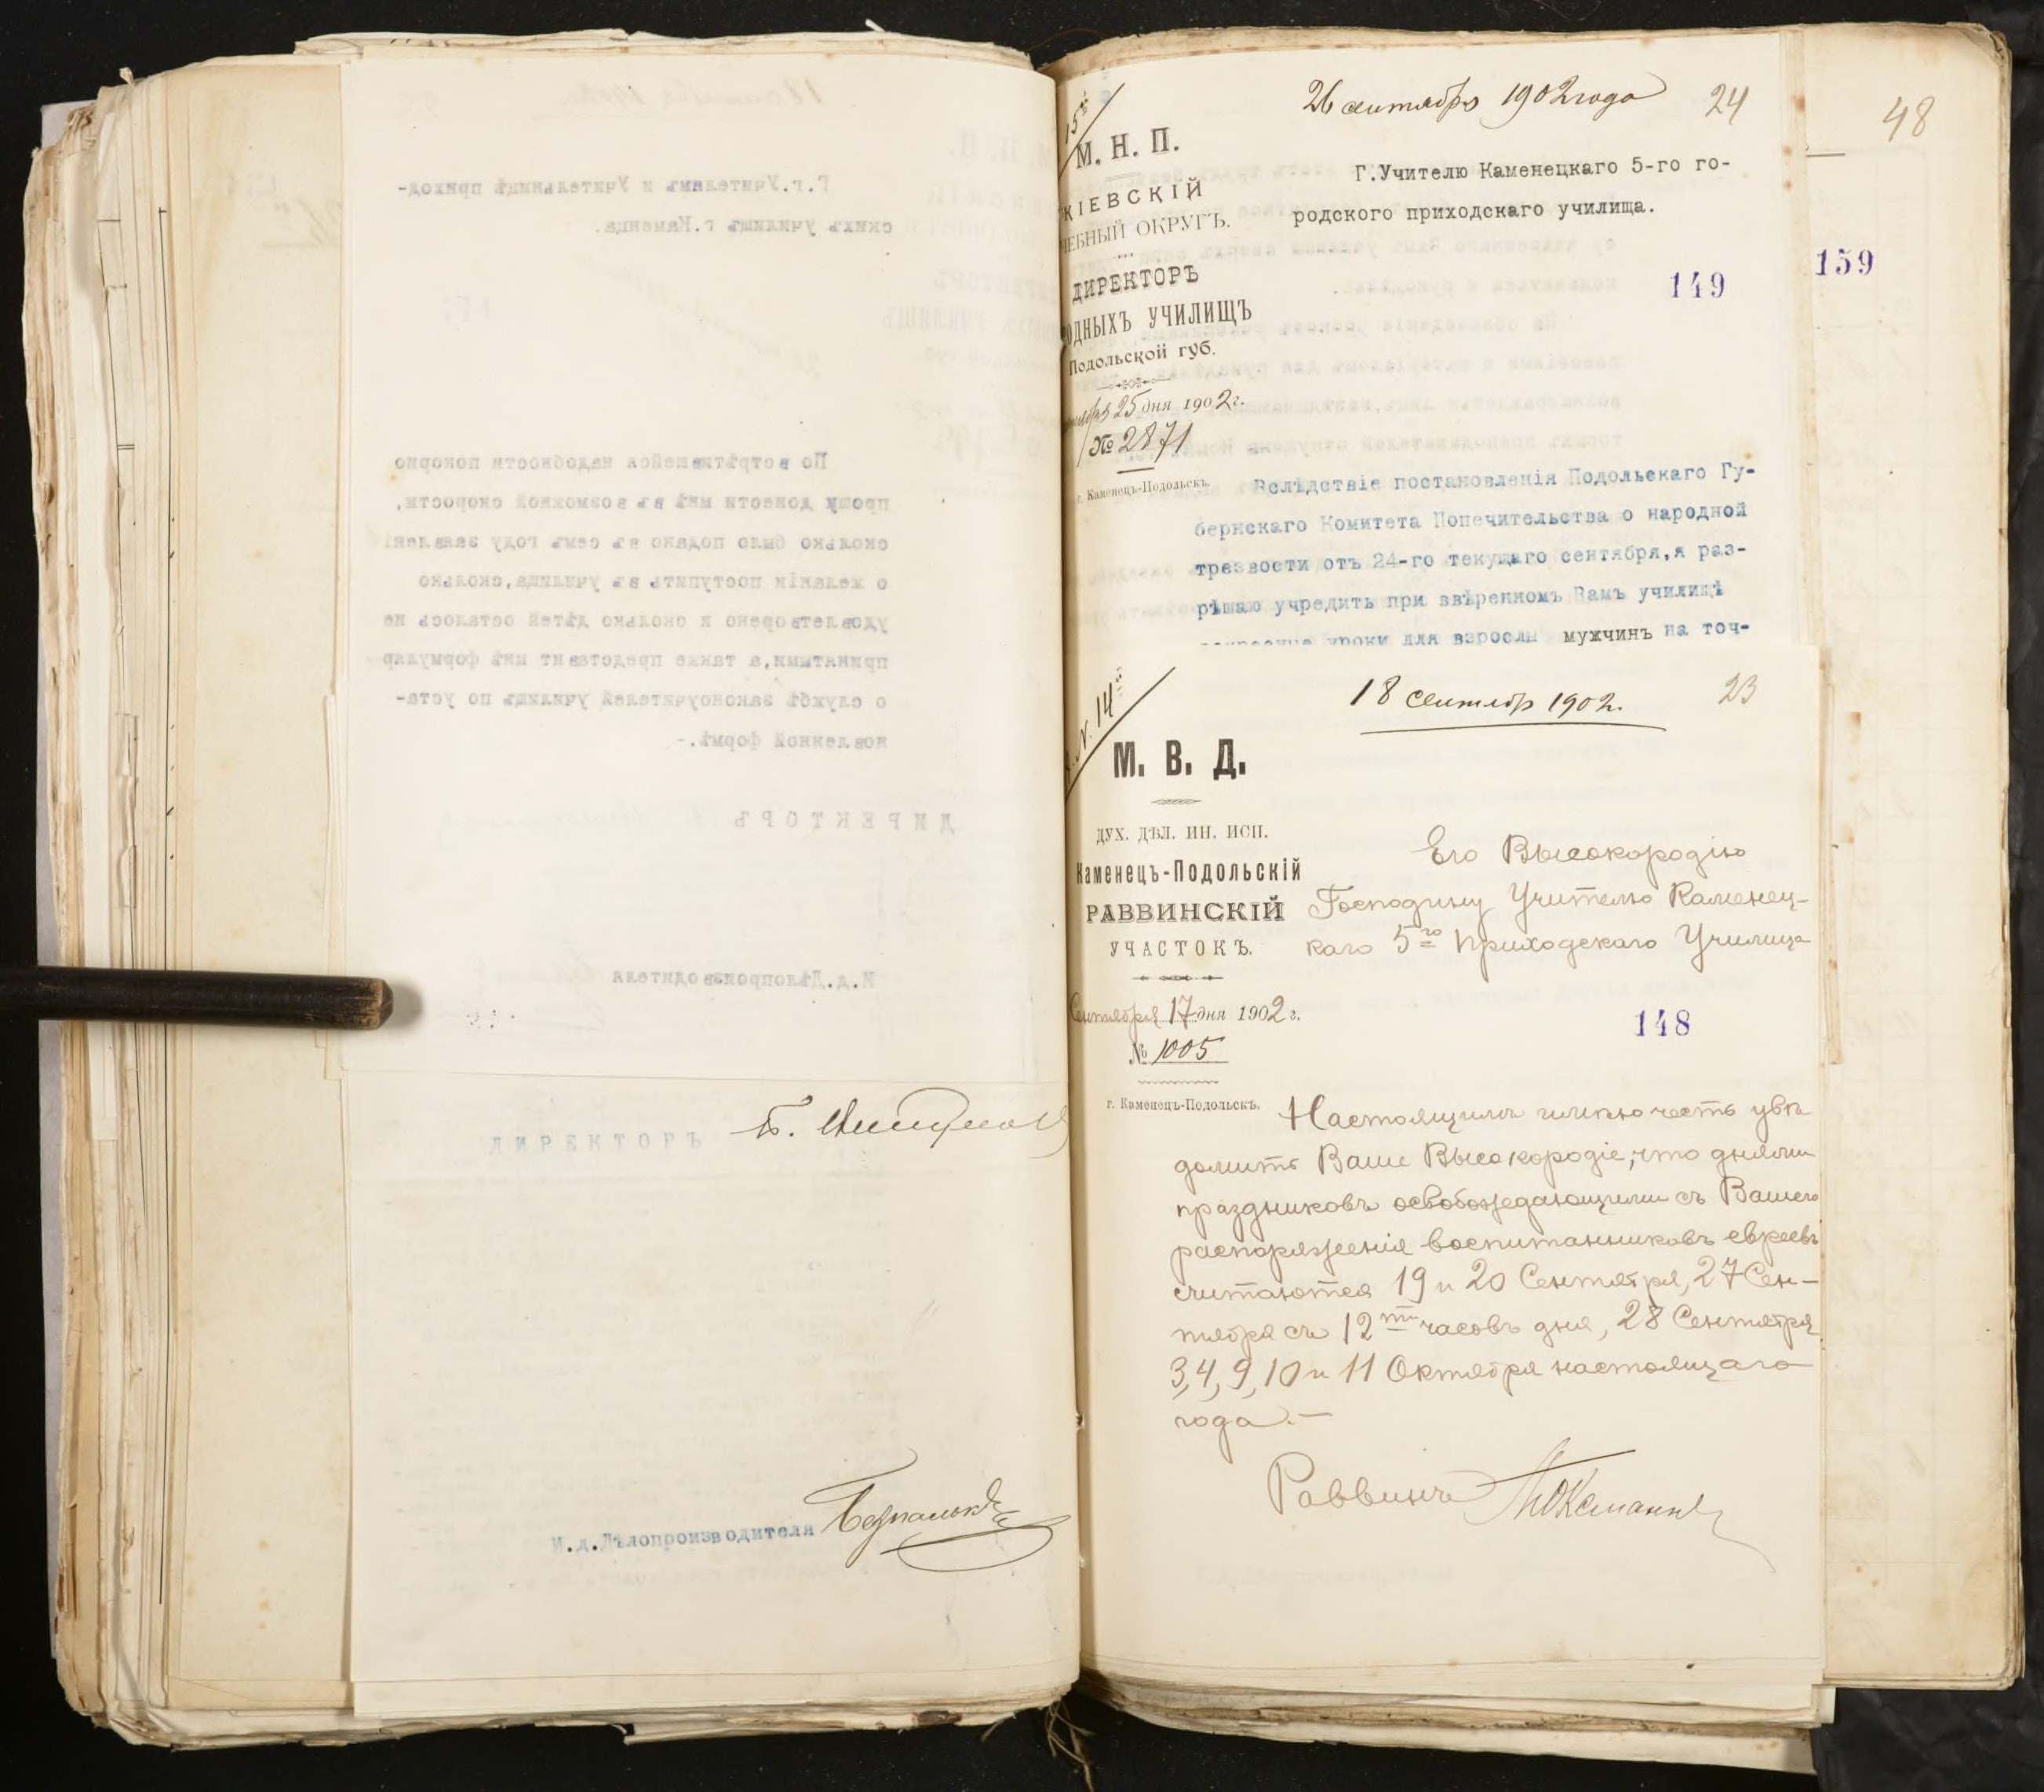 Г.г.Учителямъ и Учительницѣ приход-
скихъ училищъ г.Каменца.
По встрѣтившейся надобности покорно
прошу донести мнѣ въ возможной скорости,
сколько было подано въ семъ году заявленi
о желанiи поступить въ училища,сколько
удовлетворено и сколько дѣтей осталось не
принятыми,а также представит мнѣ формуляр
о службѣ законоучителей училищъ по уста-
новленной формѣ.-
ДИРЕКТОРЪ
И.д.Дѣлопроизводителя
ДИРЕКТОРЪ
И.д.Дѣлопроизводителя
26 сентября 1902 года 24
48
М. Н. П.
КІЕВСКІЙ
ЧЕБНЫЙ ОКРУГЪ.
ДИРЕКТОРЪ
РОДНЫХЪ УЧИЛИЩЪ
Подольской губ.
25 дня 1902 г.
№ 2871
г. Каменецъ-Подольскъ.
Г.Учителю Каменецкаго 5-го го-
родского приходскаго училища.
149
159
Вслѣдствіе постановленія Подольскаго Гу-
бернскаго Комитета Попечительства о народной
трезвости отъ 24-го текущаго сентября,я раз-
рѣшаю учредить при ввѣренномъ Вамъ училищѣ
уроки для взрослы мужчинъ на точ-
18 сентября 1902. 23
№ 14
М. В. Д.
ДУХ. ДѢЛ. ИН. ИСП.
Каменецъ-Подольскій
РАВВИНСКІЙ
УЧАСТОКЪ.
Сентября 17 дня 1902 г.
№ 1005
г. Каменецъ-Подольскъ.
Его Высокородію
Господину Учителю Каменец-
каго 5го Приходскаго Училища
148
Настоящимъ имѣю честь увѣ
домить Ваше Высокородіе, что днями
праздниковъ освобождающими съ Вашего
распоряженія воспитанниковъ евреевъ
считаются 19 и 20 Сентября, 27 Сен-
тября съ 12ти часовъ дня, 28 Сентября
3, 4, 9, 10 и 11 Октября настоящаго
года.-
Раввинъ